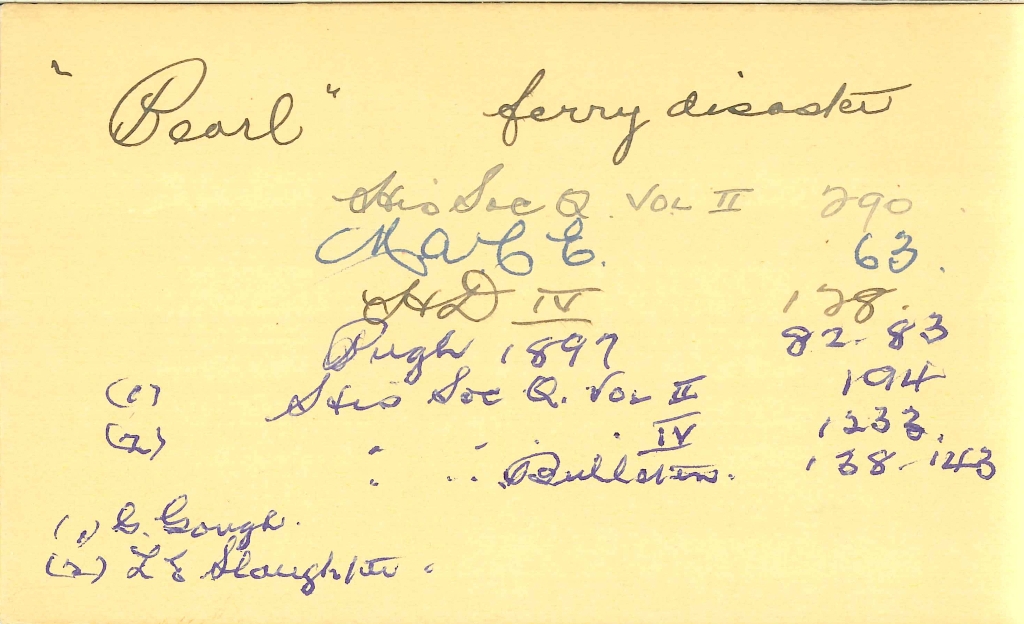 "Pearl" ferry disaster
His Soc Q. Vol II 290
M A C E. 63.
HD IV 128.
Pugh 1897 82-83
(1) His Soc Q. Vol II 194
(2) " " " IV 1233.
" " Bulletin. 138-143
(1) G. Gough.
(2) L E Slaughter.